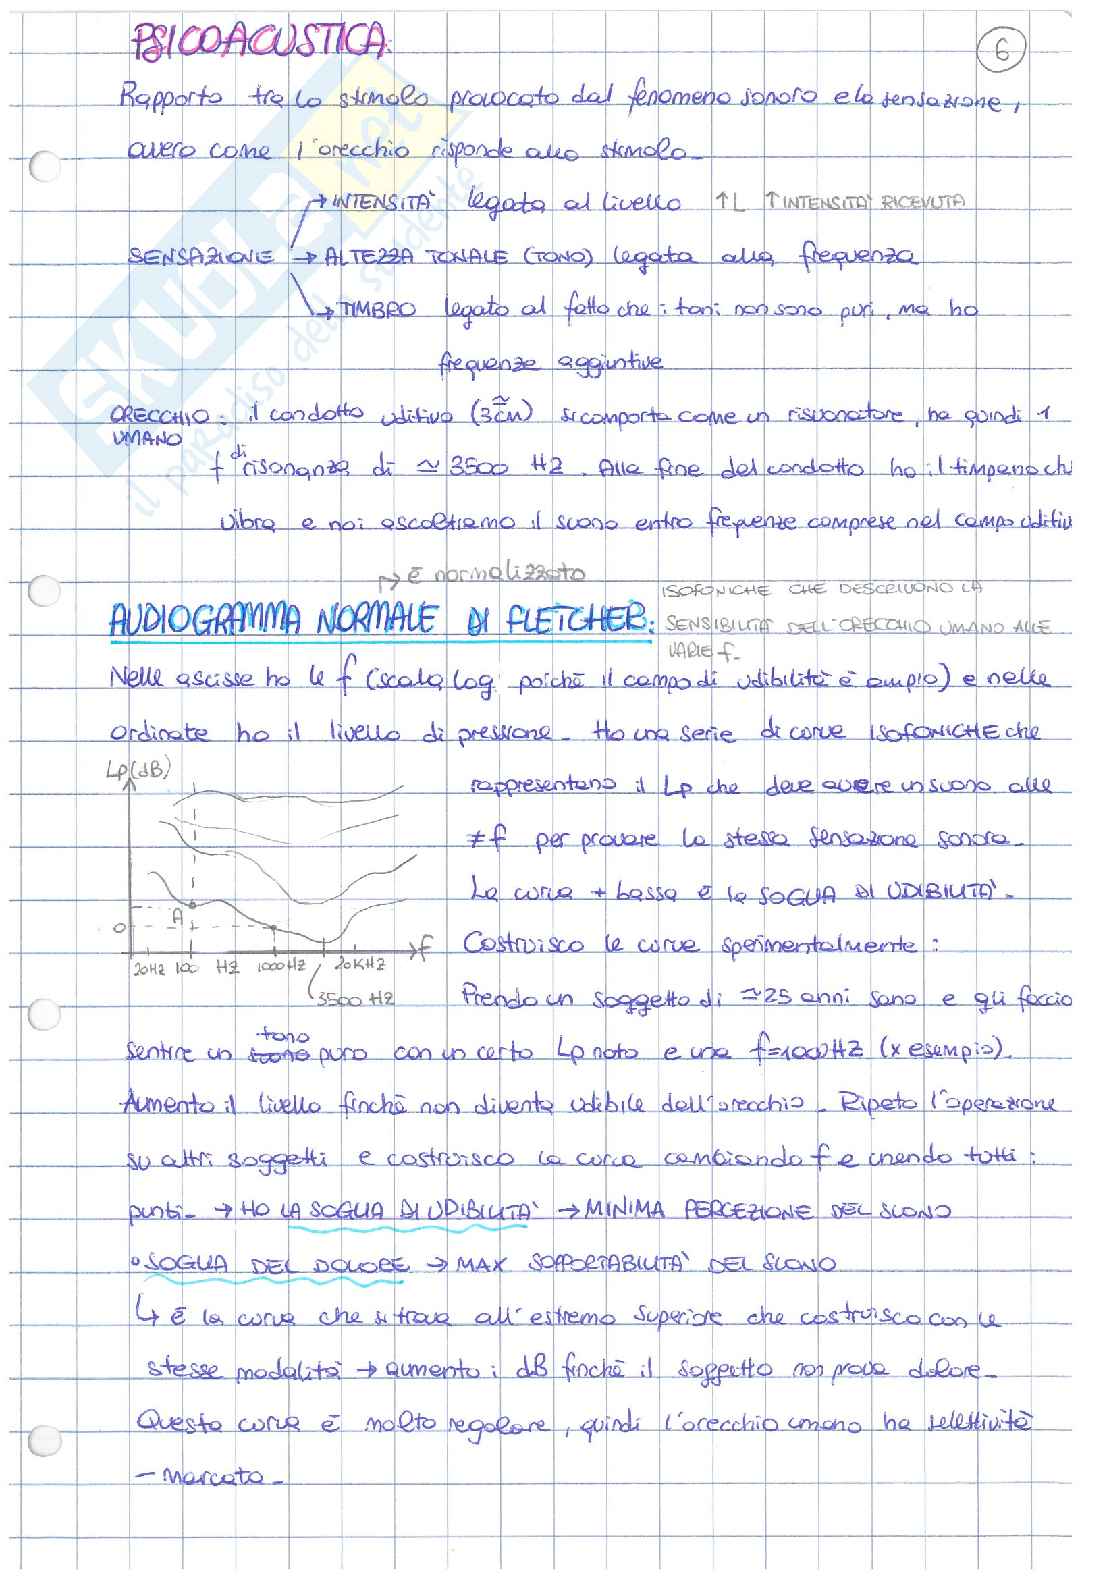 PSICOACUSTICA.
6
Rapporto tra lo stimolo provocato dal fenomeno sonoro e la sensazione,
ovvero come l'orecchio risponde allo stimolo.
→ INTENSITÀ legata al livello ↑L ↑INTENSITÀ RICEVUTA
SENSAZIONE → ALTEZZA TONALE (TONO) legata alla frequenza
→ TIMBRO legato al fatto che i toni non sono puri, ma ho
frequenze aggiuntive
ORECCHIO UMANO: il condotto uditivo (3cm) si comporta come un risuonatore, ha quindi 1
f di risonanza di ≃ 3500 HZ. Alla fine del condotto ho il timpano ch
vibra e noi ascoltiamo il suono entro frequenze comprese nel campo uditiv
→ è normalizzato
AUDIOGRAMMA NORMALE DI FLETCHER:
ISOFONICHE CHE DESCRIVONO LA
SENSIBILITÀ DELL'ORECCHIO UMANO ALLE
VARIE f.
Nelle ascisse ho le f (scala log poichè il campo di udibilità è ampio) e nelle
ordinate ho il livello di pressione. Ho una serie di curve ISOFONICHE che
Lp(dB)
rappresentano il Lp che deve avere un suono alle
≠f per provare la stessa sensazione sonora.
La curva + bassa è la SOGLIA DI UDIBILITÀ.
A
0
f
20HZ 100 HZ 1000HZ 20KHZ
3500 HZ
Costruisco le curve sperimentalmente:
Prendo un soggetto di ≃25 anni sano e gli faccio
sentire un tono puro con un certo Lp noto e una f=1000HZ (x esempio).
Aumento il livello finchè non diventa udibile dall'orecchio. Ripeto l'operazione
su altri soggetti e costruisco la curva cambiando f e unendo tutti i
punti. → HO LA SOGLIA DI UDIBILITÀ → MINIMA PERCEZIONE DEL SUONO
• SOGLIA DEL DOLORE → MAX SOPPORTABILITÀ DEL SUONO
↳ è la curva che si trova all'estremo superiore che costruisco con le
stesse modalità → aumento i dB finchè il soggetto non prova dolore.
Questa curva è molto regolare, quindi l'orecchio umano ha selettività
– marcata.
SKUOLA.net
il paradiso dello studente